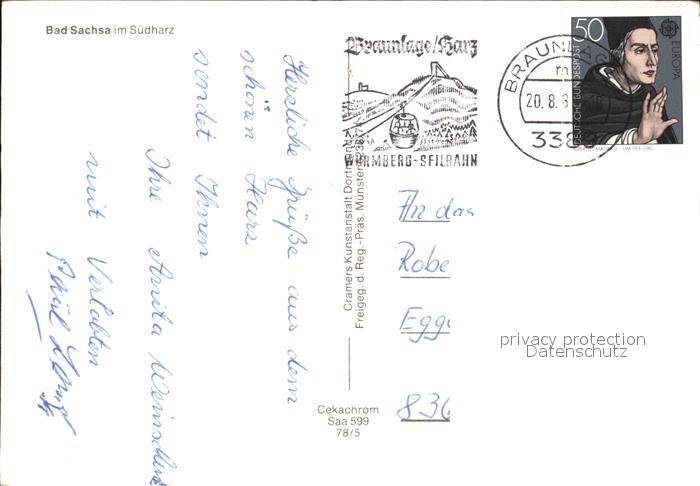 Bad Sachsa im Südharz
Herzliche Grüße aus dem
schönen Harz
sendet Ihnen
Ihre Anita
mit Verlobten
Paul
Braunlage/Harz
WURMBERG-SEILBAHN
BRAUNLA
20.8.8
338
50
DEUTSCHE BUNDESPOST
EUROPA
Cramers Kunstanstalt Dortmund
Freigeg. d. Reg.-Präs. Münster
Cekachrom
Saa 599
78/5
An das
Robe
Egge
836
privacy protection
Datenschutz